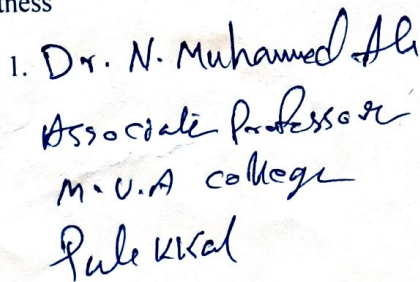 ness
1. Dr. N. Muhammed Ali
Associate Professor
M.U.A College
Pulekkal